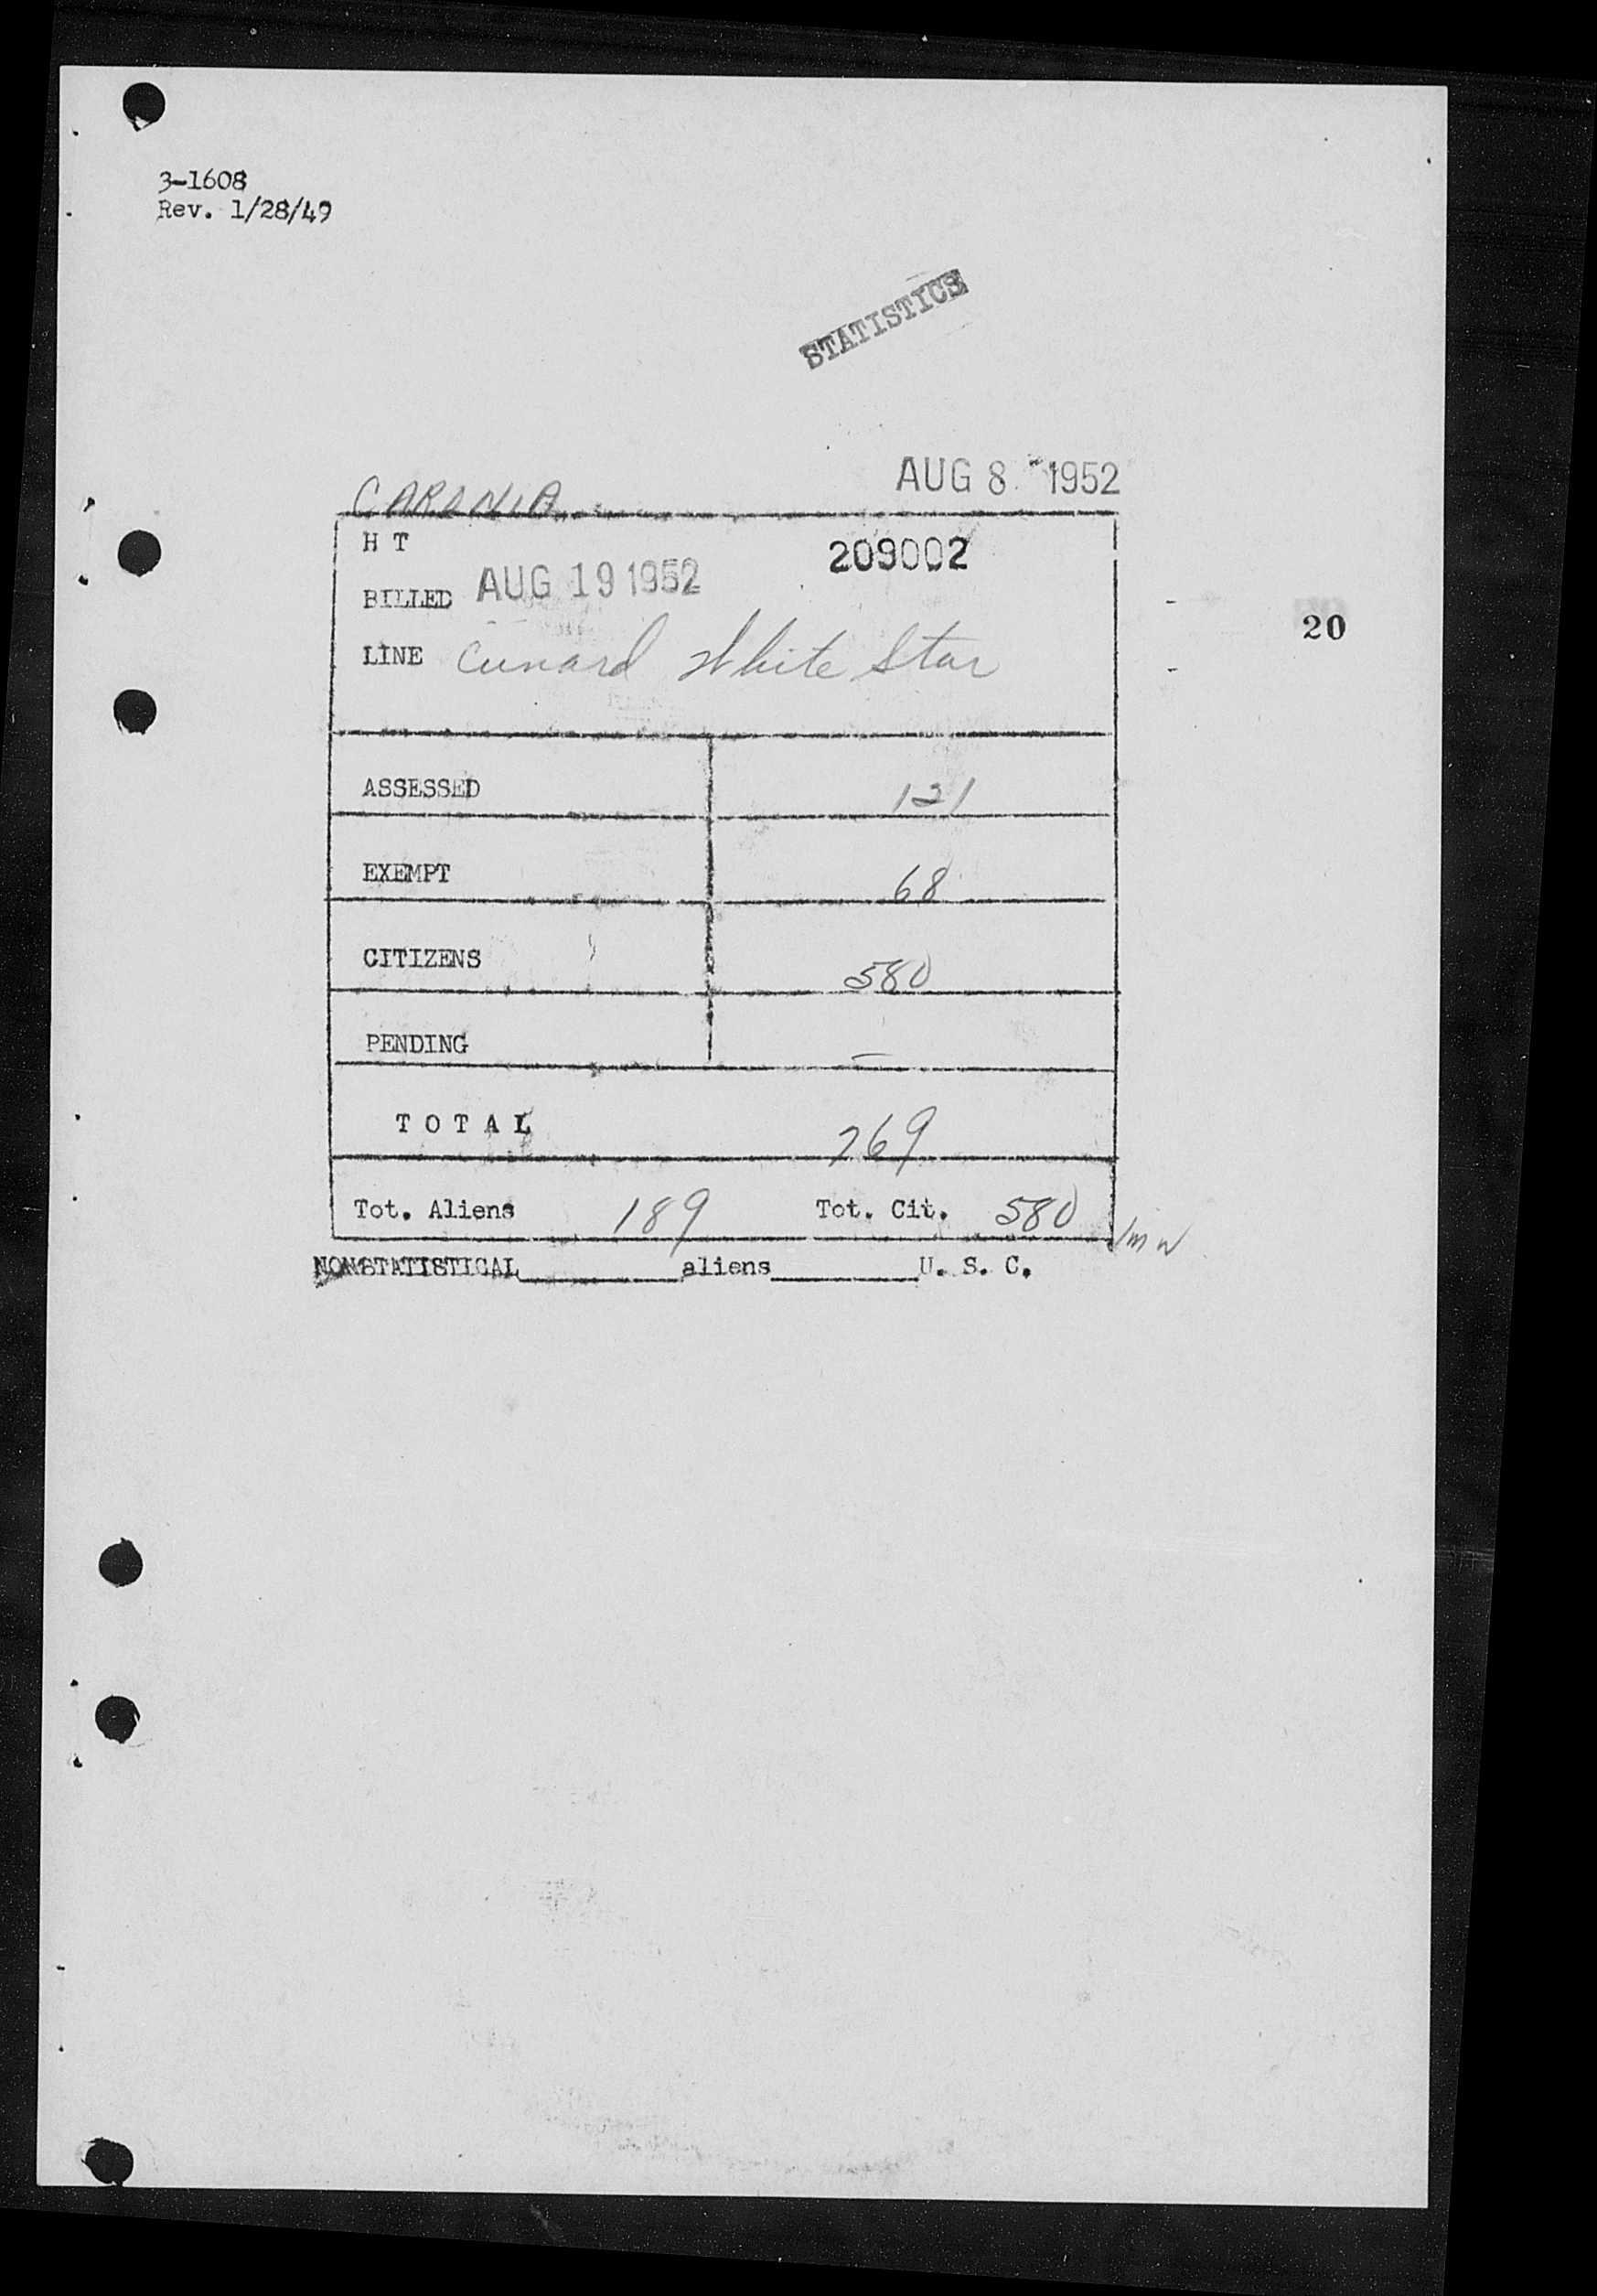 3-1608
Rev. 1/28/49
STATISTICS
AUG 8 - 1952
CARONIA
H T
209002
BILLED AUG 19 1952
20
LINE Cunard White Star
ASSESSED 121
EXEMPT 68
CITIZENS 580
PENDING —
T O T A L 769
Tot. Aliens 189 Tot. Cit. 580
NONSTATISTICAL________aliens________U. S. C.